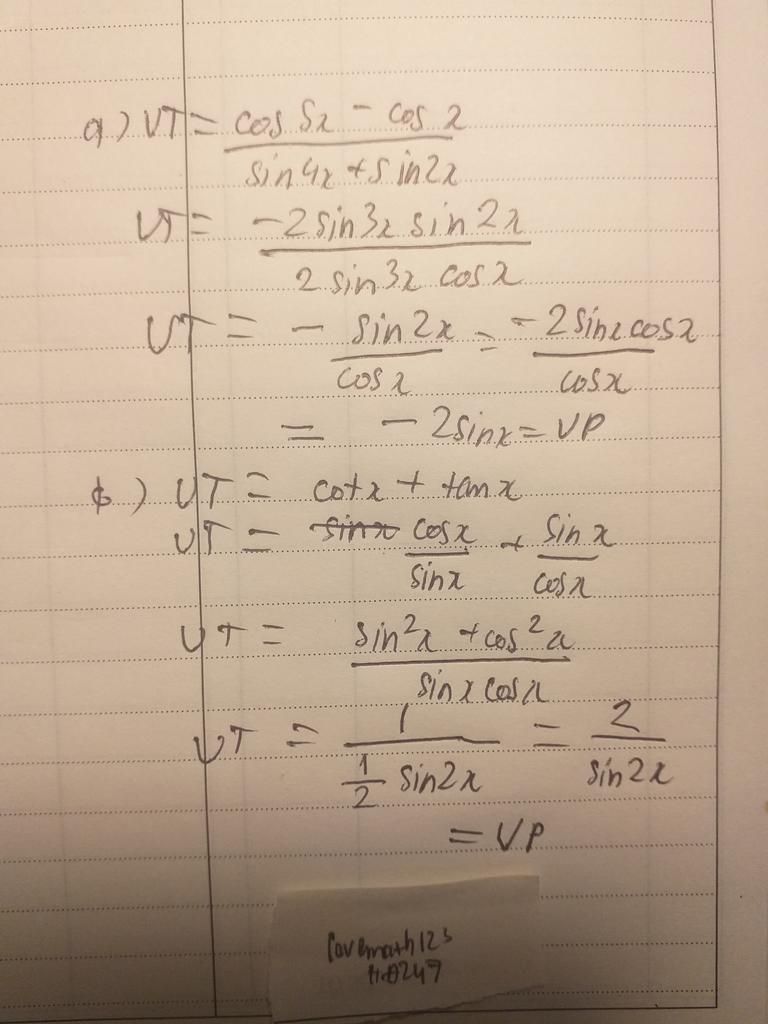 a) VT = (cos 5x - cos x) / (sin4x + sin2x)
VT = (-2 sin3x sin2x) / (2 sin3x cosx)
VT = - (sin2x) / (cosx) = (-2sinxcosx) / (cosx)
= -2sinx = VP
b) VT = cotx + tanx
VT = ~~sinx~~ (cosx) / (sinx) + (sinx) / (cosx)
VT = (sin²x + cos²x) / (sinx cosx)
VT = 1 / (1/2 sin2x) = 2 / (sin2x)
= VP
lovemath123